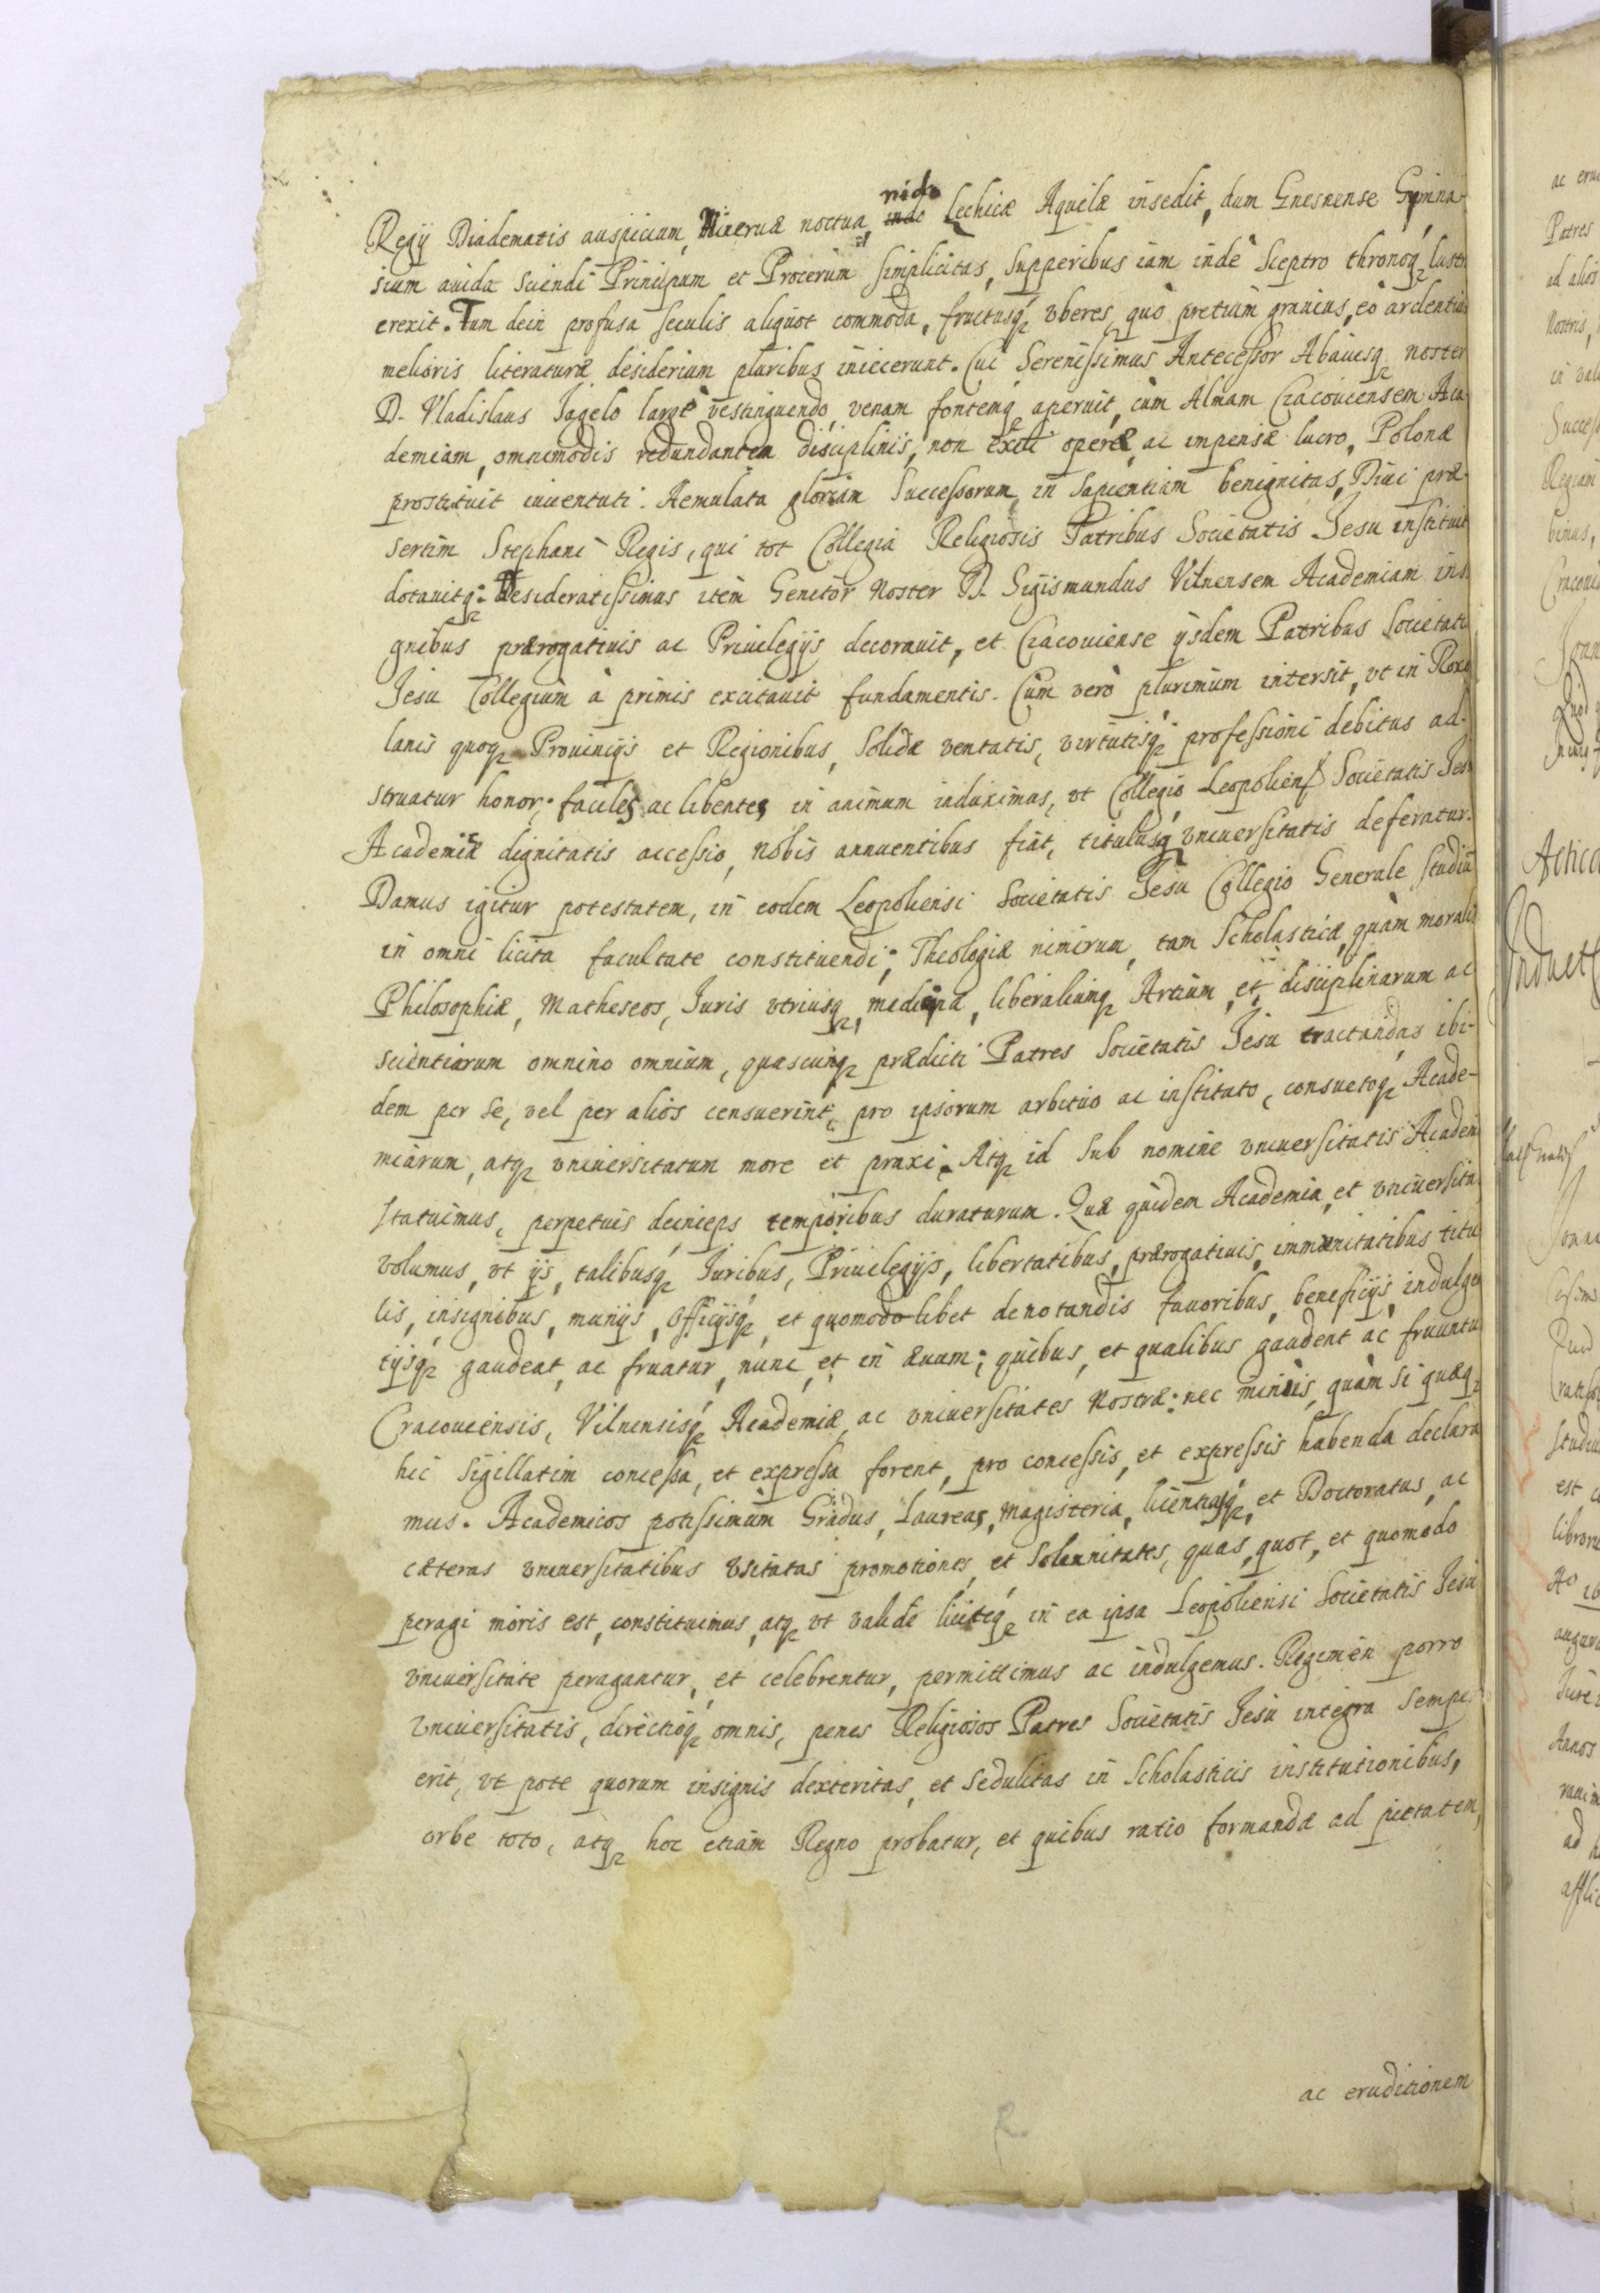 Regij Diadematis auspicium, Mineruæ noctua, nido Lechicæ Aquilæ insedit, dum Gnesnense Gymna-
sium auida sciendi Principum et Procerum simplicitas, supperibus iam inde Sceptro thronoq;
erexit. Tum dein profusa seculis aliquot commoda, fructusq; vberes, quò pretium grauius, eò ardentius
melioris literaturæ desiderium pluribus iniecerunt. Cui Serenissimus Antecessor Abauusq; noster
D. Vladislaus Jagelo largè restinguendo, venam fontemq; aperuit, cùm Almam Cracouiensem Aca
demiam, omnimodis redundantem disciplinis, non exili operæ, ac impensæ lucro, Polonæ
prostituit iuuentuti. Aemulata gloriam Successorum, in sapientiam benignitas, Diui præ-
sertim Stephani Regis, qui tot Collegia Religiosis Patribus Societatis Jesu instituit
dotauitq: Desideratissimus item Genitor Noster D. Sigismundus Vilnensem Academiam insi
gnibus prærogatiuis ac Priuilegijs decorauit, et Cracouiense ijsdem Patribus Societatis
Jesu Collegium à primis excitauit fundamentis. Cùm verò plurimùm intersit, vt in Roxo
lanis quoq; Prouincijs et Regionibus, Solidæ veritatis, virtutisq; professioni debitus ad-
struatur honor; faciles ac libentes in animum induximus, vt Collegio Leopolien Societatis Jesu
Academiæ dignitatis accessio, nobis annuentibus fiat, titulusq; vniuersitatis deferatur.
Damus igitur potestatem, in eodem Leopoliensi Societatis Jesu Collegio Generale studiū
in omni licita facultate constituendi; Theologiæ nimirum, tam Scholasticæ, quàm moralis
Philosophiæ, Matheseos, Juris vtriusq;, medicinæ, liberaliumq; Artium, et disciplinarum ac
scientiarum omnino omnium, quascunq; prædicti Patres Societatis Jesu tractandas ibi-
dem per se, vel per alios censuerint, pro ipsorum arbitrio ac instituto, consuetoq; Acade-
miarum, atq; vniuersitatum more et praxi. Atq; id sub nomine vniuersitatis Academ
statuimus, perpetuis deinceps temporibus duraturum. Quæ quidem Academia, et vniuersita
volumus, vt ijs, talibusq; Juribus, Priuilegijs, libertatibus, prærogatiuis, immunitatibus titu
lis, insignibus, munijs, officijsq;, et quomodolibet denotandis fauoribus, beneficijs, indulgen
tijsq; gaudeat, ac fruatur, nunc, et in æuum; quibus, et qualibus gaudent ac fruuntu
Cracouiensis, Vilnensisq; Academiæ, ac vniuersitates Nostræ: nec minùs, quàm si quæq;
hic sigillatim concessa, et expressa forent, pro concessis, et expressis habenda declara
mus. Academicos potissimùm Gradus, Laureas, Magisteria, licentiasq;, et Doctoratus, ac
cæteras vniuersitatibus vsitatas promotiones, et Solennitates, quas, quot, et quomodo
peragi moris est, constituimus, atq; vt validè liciteq; in ea ipsa Leopoliensi Societatis Jesu
vniuersitate peragantur, et celebrentur, permittimus ac indulgemus. Regimen porro
vniuersitatis, directioq; omnis, penes Religiosos Patres Societatis Jesu integra semper
erit, vt pote quorum insignis dexteritas, et sedulitas in Scholasticis institutionibus,
orbe toto, atq; hoc etiam Regno probatur, et quibus ratio formandæ ad pietatem,
ac eruditionem